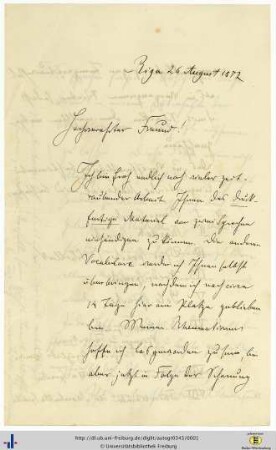 Riga 26 August 1872
Hochverehrter Freund!
Ich bin froh endlich nach vieler zeit-
raubender Arbeit Ihnen das druk-
fertige Material von zwei Sprachen
einhändigen zu können. Die anderen
Vocabulare werde ich Ihnen selbst
überbringen, nachdem ich noch etwa
14 Tage hier am Platze geblieben
bin. Meinen
hoffe ich losgeworden zu sein bin
aber jetzt in Folge der
http://dl.ub.uni-freiburg.de/diglit/autogr0341/0001
© Universitätsbibliothek Freiburg